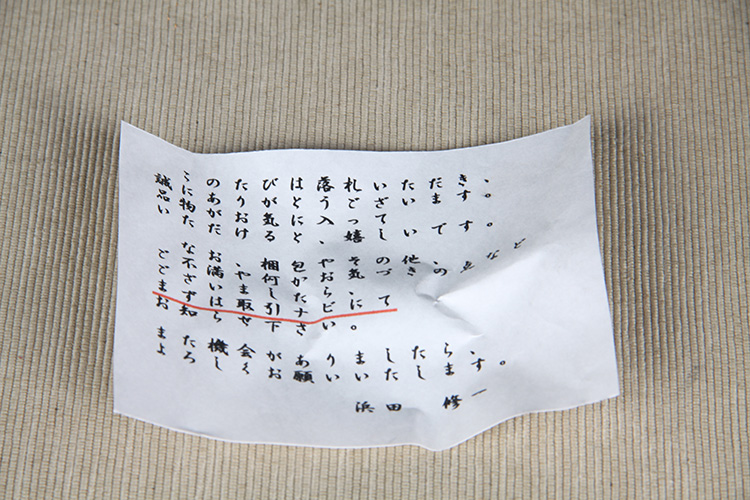 このたびは落札いただき、
誠にありがとうございます。
品物がお気に入って
いただけると、嬉しいです。
なお、梱包やその他、
ご不満や何かお気づきの点など
ございましたら、
まずは取引ナビにて
お知らせ下さい。
また機会がありましたら、
よろしくお願いいたします。
浜田 修一